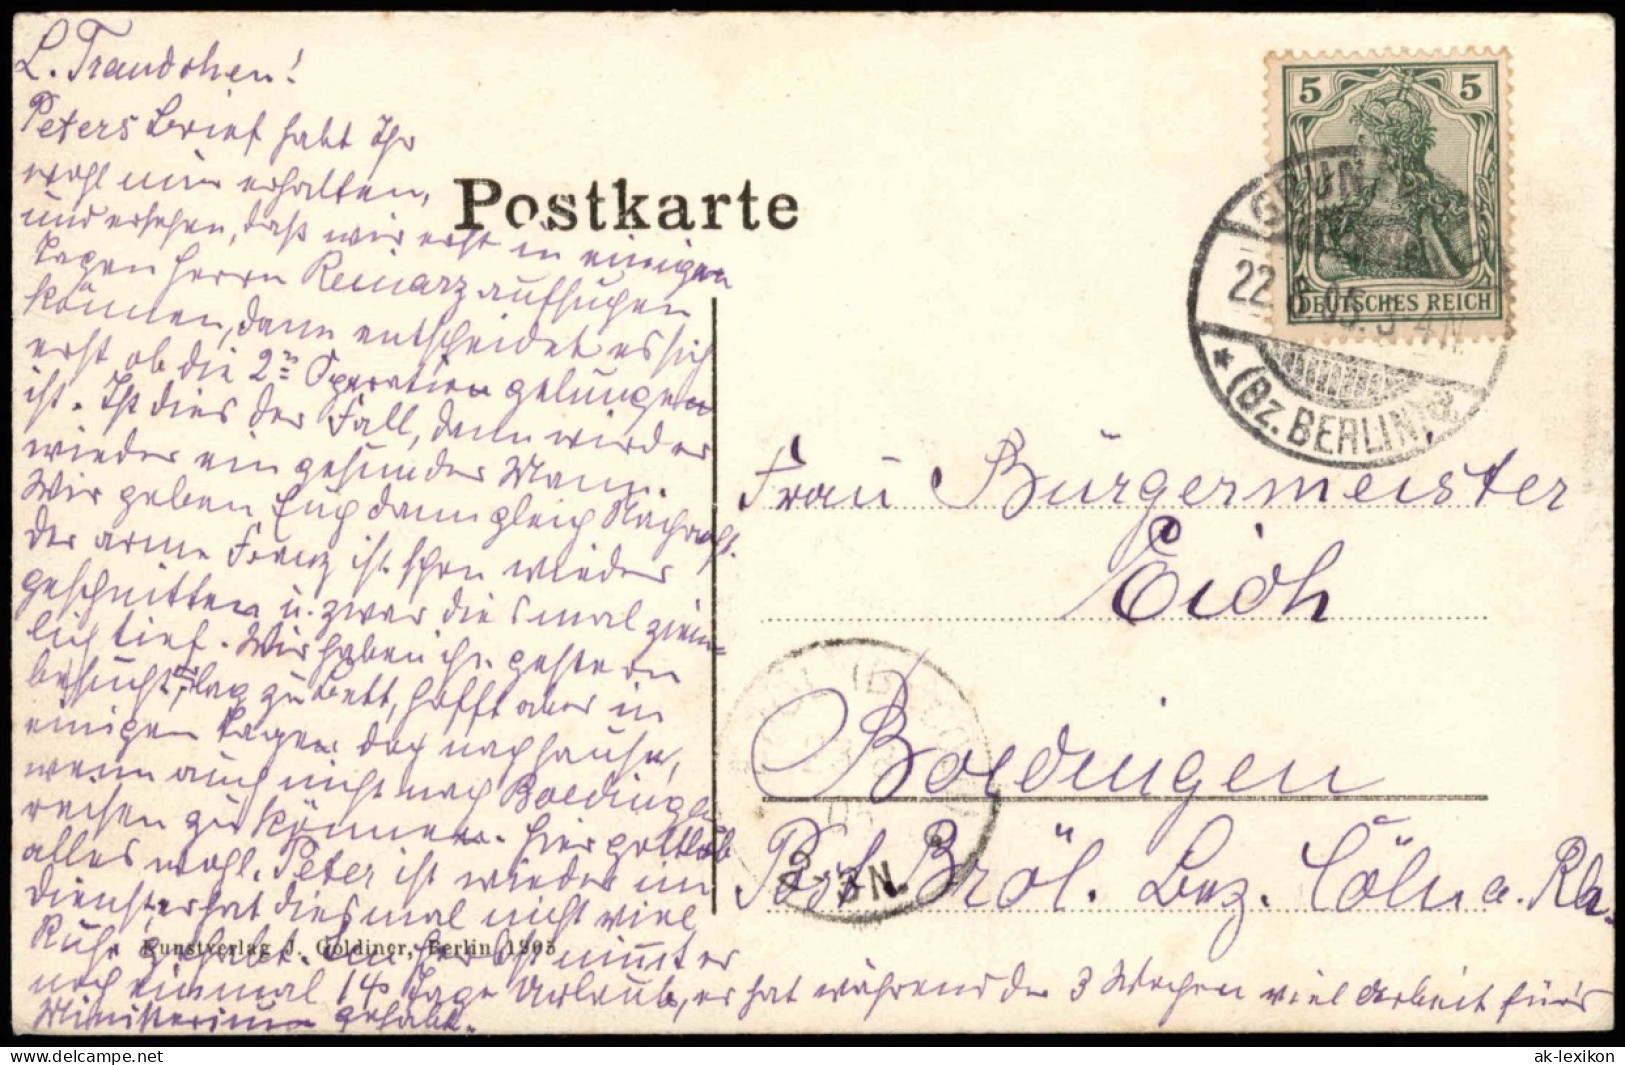 L. Traudchen!
Peters Brief habt Ihr
wohl nun erhalten,
und ersehen, daß wir erst in einigen
Tagen Herrn Reinarz aufsuchen
können, dann entscheidet es sich
erst ob die 2te Operation gelungen
ist. Ist dies der Fall, dann wird er
wieder ein gesunder Mann.
Wir geben Euch dann gleich Nachricht.
Der arme Franz ist schon wieder
geschnitten u. zwar diesmal ziem=
lich tief. Wir haben ihn gestern
besucht, er lag zu Bett, hofft aber in
einigen Tagen doch nachhause,
wenn auch nicht nach Boedingen
reisen zu können. Hier gottlob
alles wohl. Peter ist wieder im
Dienst, er hat diesmal nicht viel
Ruhe gehabt. Im Herbst nimmt er
noch einmal 14 Tage Urlaub, er hat während der 3 Wochen viel Arbeit für's
Ministerium gehabt.
Postkarte
5 5
DEUTSCHES REICH
22.
(Bz. BERLIN)
Frau Bürgermeister
Eich
Boedingen
Post Bröl. Bez. Cöln a. Rh.
2-3N.
Kunstverlag J. Goldiner, Berlin 1905
www.ansichtskarten-lexikon.de
ak-lexikon